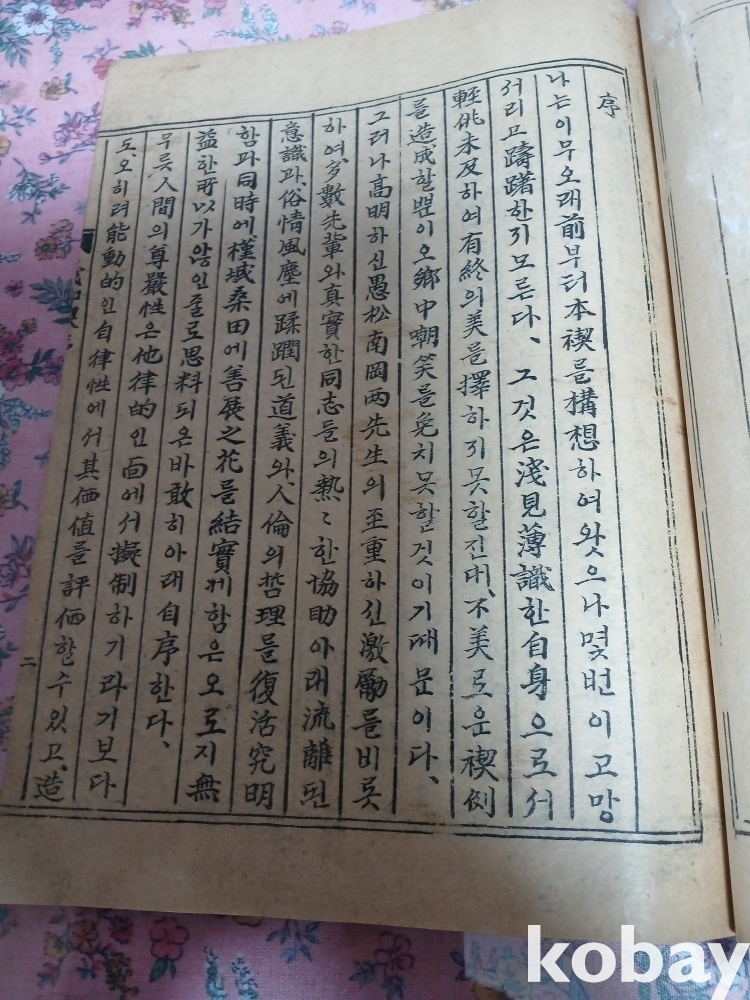 序
나는이무오래前부터本禊를構想하여왓으나몇번이고망
서리고躊躇한지모른다、그것은淺見薄識한自身으로서
輕佻未及하여有終의美를擇하지못할진대、不美로운禊例
를造成할뿐이오鄕中嘲笑를免치못할것이기때문이다、
그러나高明하신愚松南岡两先生의至重하신激勵를비롯
하여、多數先輩와真實한同志들의熱〻한協助아래流離된
意識과、俗情風塵에蹂躙된道義와、人倫의哲理를復活究明
함과同時에、槿域桑田에善展之花를結實케함은오로지無
益한所以가않인줄로思料되온바敢히아래自序한다、
무릇人間의尊嚴性은他律的인面에서擬制하기라기보다
도、오히려能動的인自律性에서其価値를評価할수있고、造
二
kobay